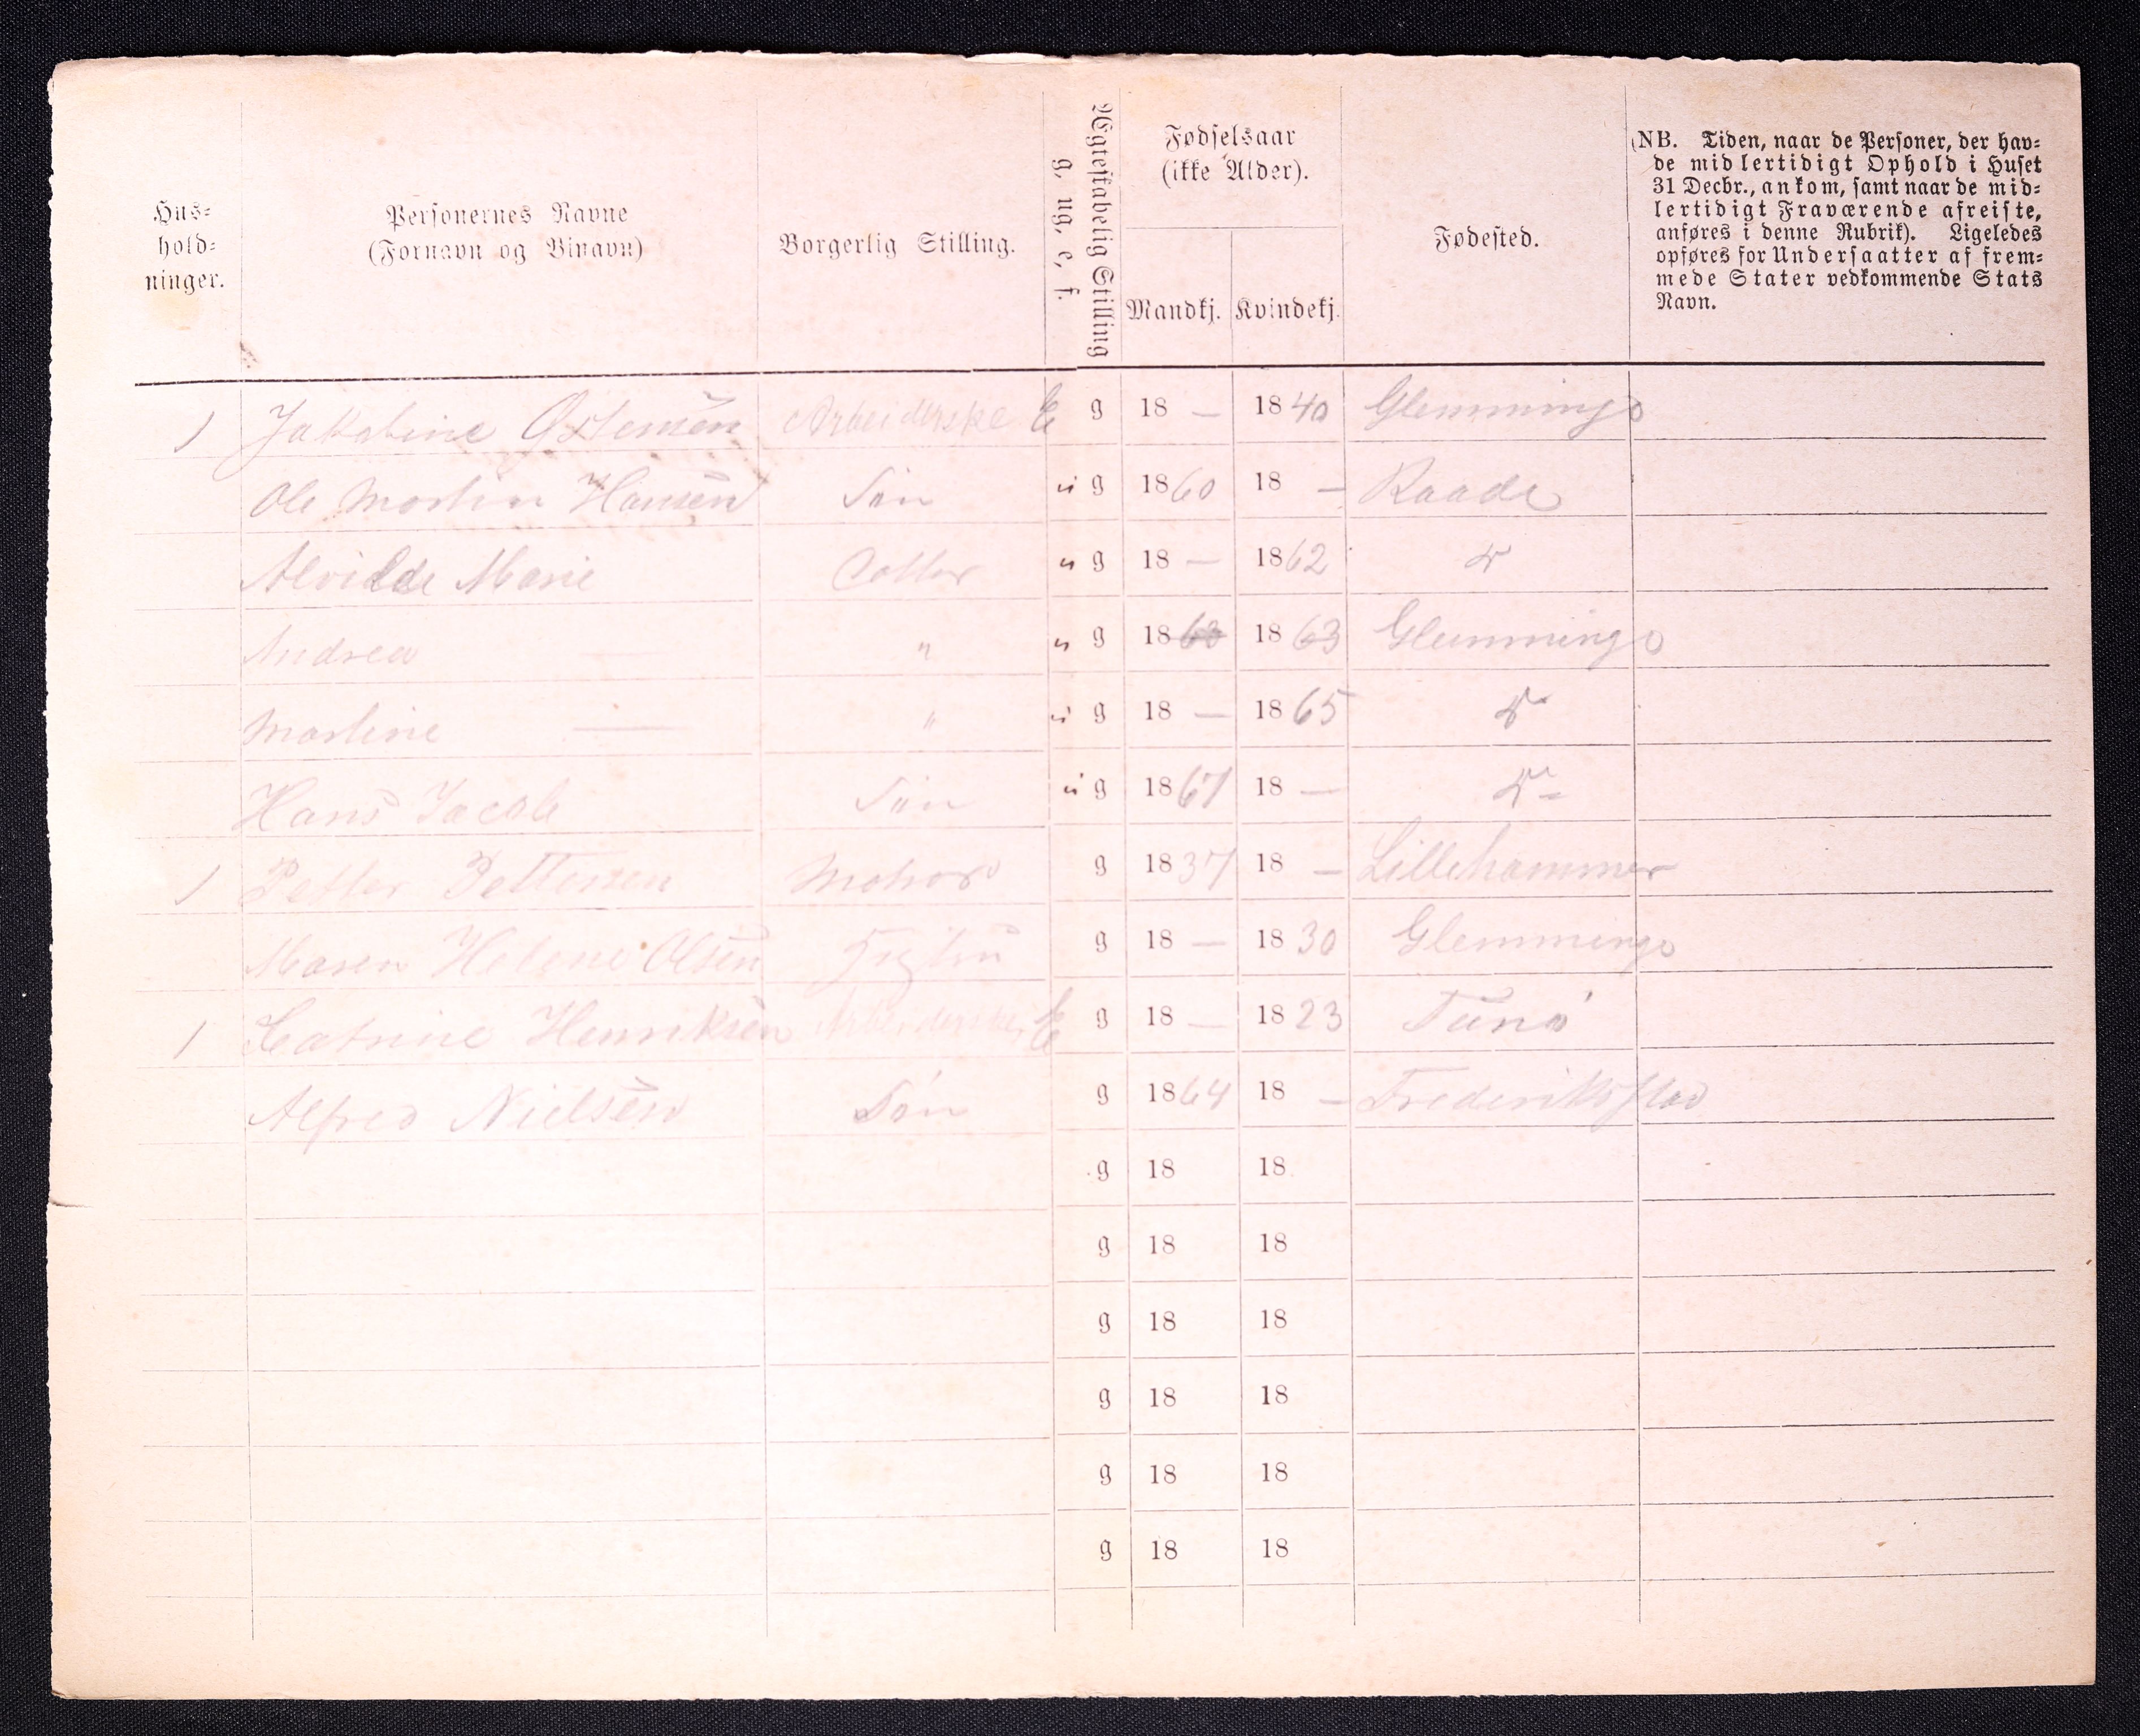 Hus-
hold-
ninger.
Personernes Navne
(Fornavn og Binavn)
Borgerlig Stilling.
Ægteskabelig Stilling
g, ug, e, f.
Fødselsaar
(ikke Alder).
Mandkj. Kvindekj.
Fødested.
(NB. Tiden, naar de Personer, der hav-
de midlertidigt Ophold i Huset
31 Decbr., ankom, samt naar de mid-
lertidigt Fraværende afreiste,
anføres i denne Rubrik). Ligeledes
opføres for Undersaatter af frem-
mede Stater vedkommende Stats
Navn.
1 Jakobine Østensen Arbeiderske E g 18 — 1840 Glemminge
Ole Martin Hansen Søn u g 1860 18 — Raade
Alvilde Marie Datter u g 18 — 1862 do
Andrea — " u g 1863 1863 Glemminge
Martine — " u g 18 — 1865 do
Hans Jacob Søn u g 1867 18 — do
1 Petter Pettersen g 1837 18 — Lillehammer
Maren Helene Olsen g 18 — 1830 Glemminge
1 Catrine Henriksen Arbeiderske E g 18 — 1823 Tunø
Alfred Nielsen Søn g 1864 18 — Frederiksstad
g 18 18
g 18 18
g 18 18
g 18 18
g 18 18
g 18 18